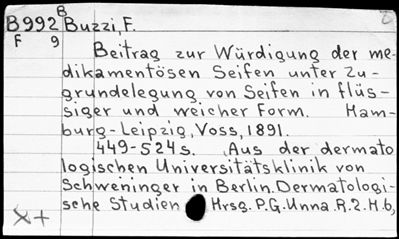 B
B992 Buzzi, F.
F 9
Beitrag zur Würdigung der me-
dikamentösen Seifen unter Zu-
grundelegung von Seifen in flüs-
siger und weicher Form. Ham-
burg-Leipzig, Voss, 1891.
449-524 s. Aus der dermato
logischen Universitätsklinik von
Schweninger in Berlin. Dermatologi-
sche Studien Hrsg. P.G. Unna. R.2. H.6,
X+